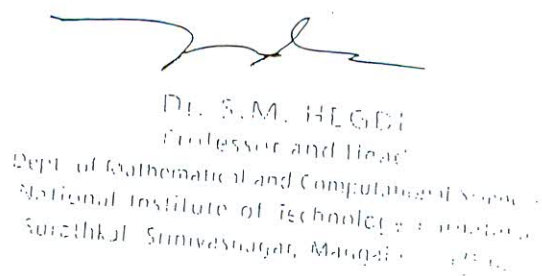 Dr. S.M. HEGDE
Professor and Head
Dept. of Mathematical and Computational
National Institute of Technology
Surathkal Srinivasnagar,